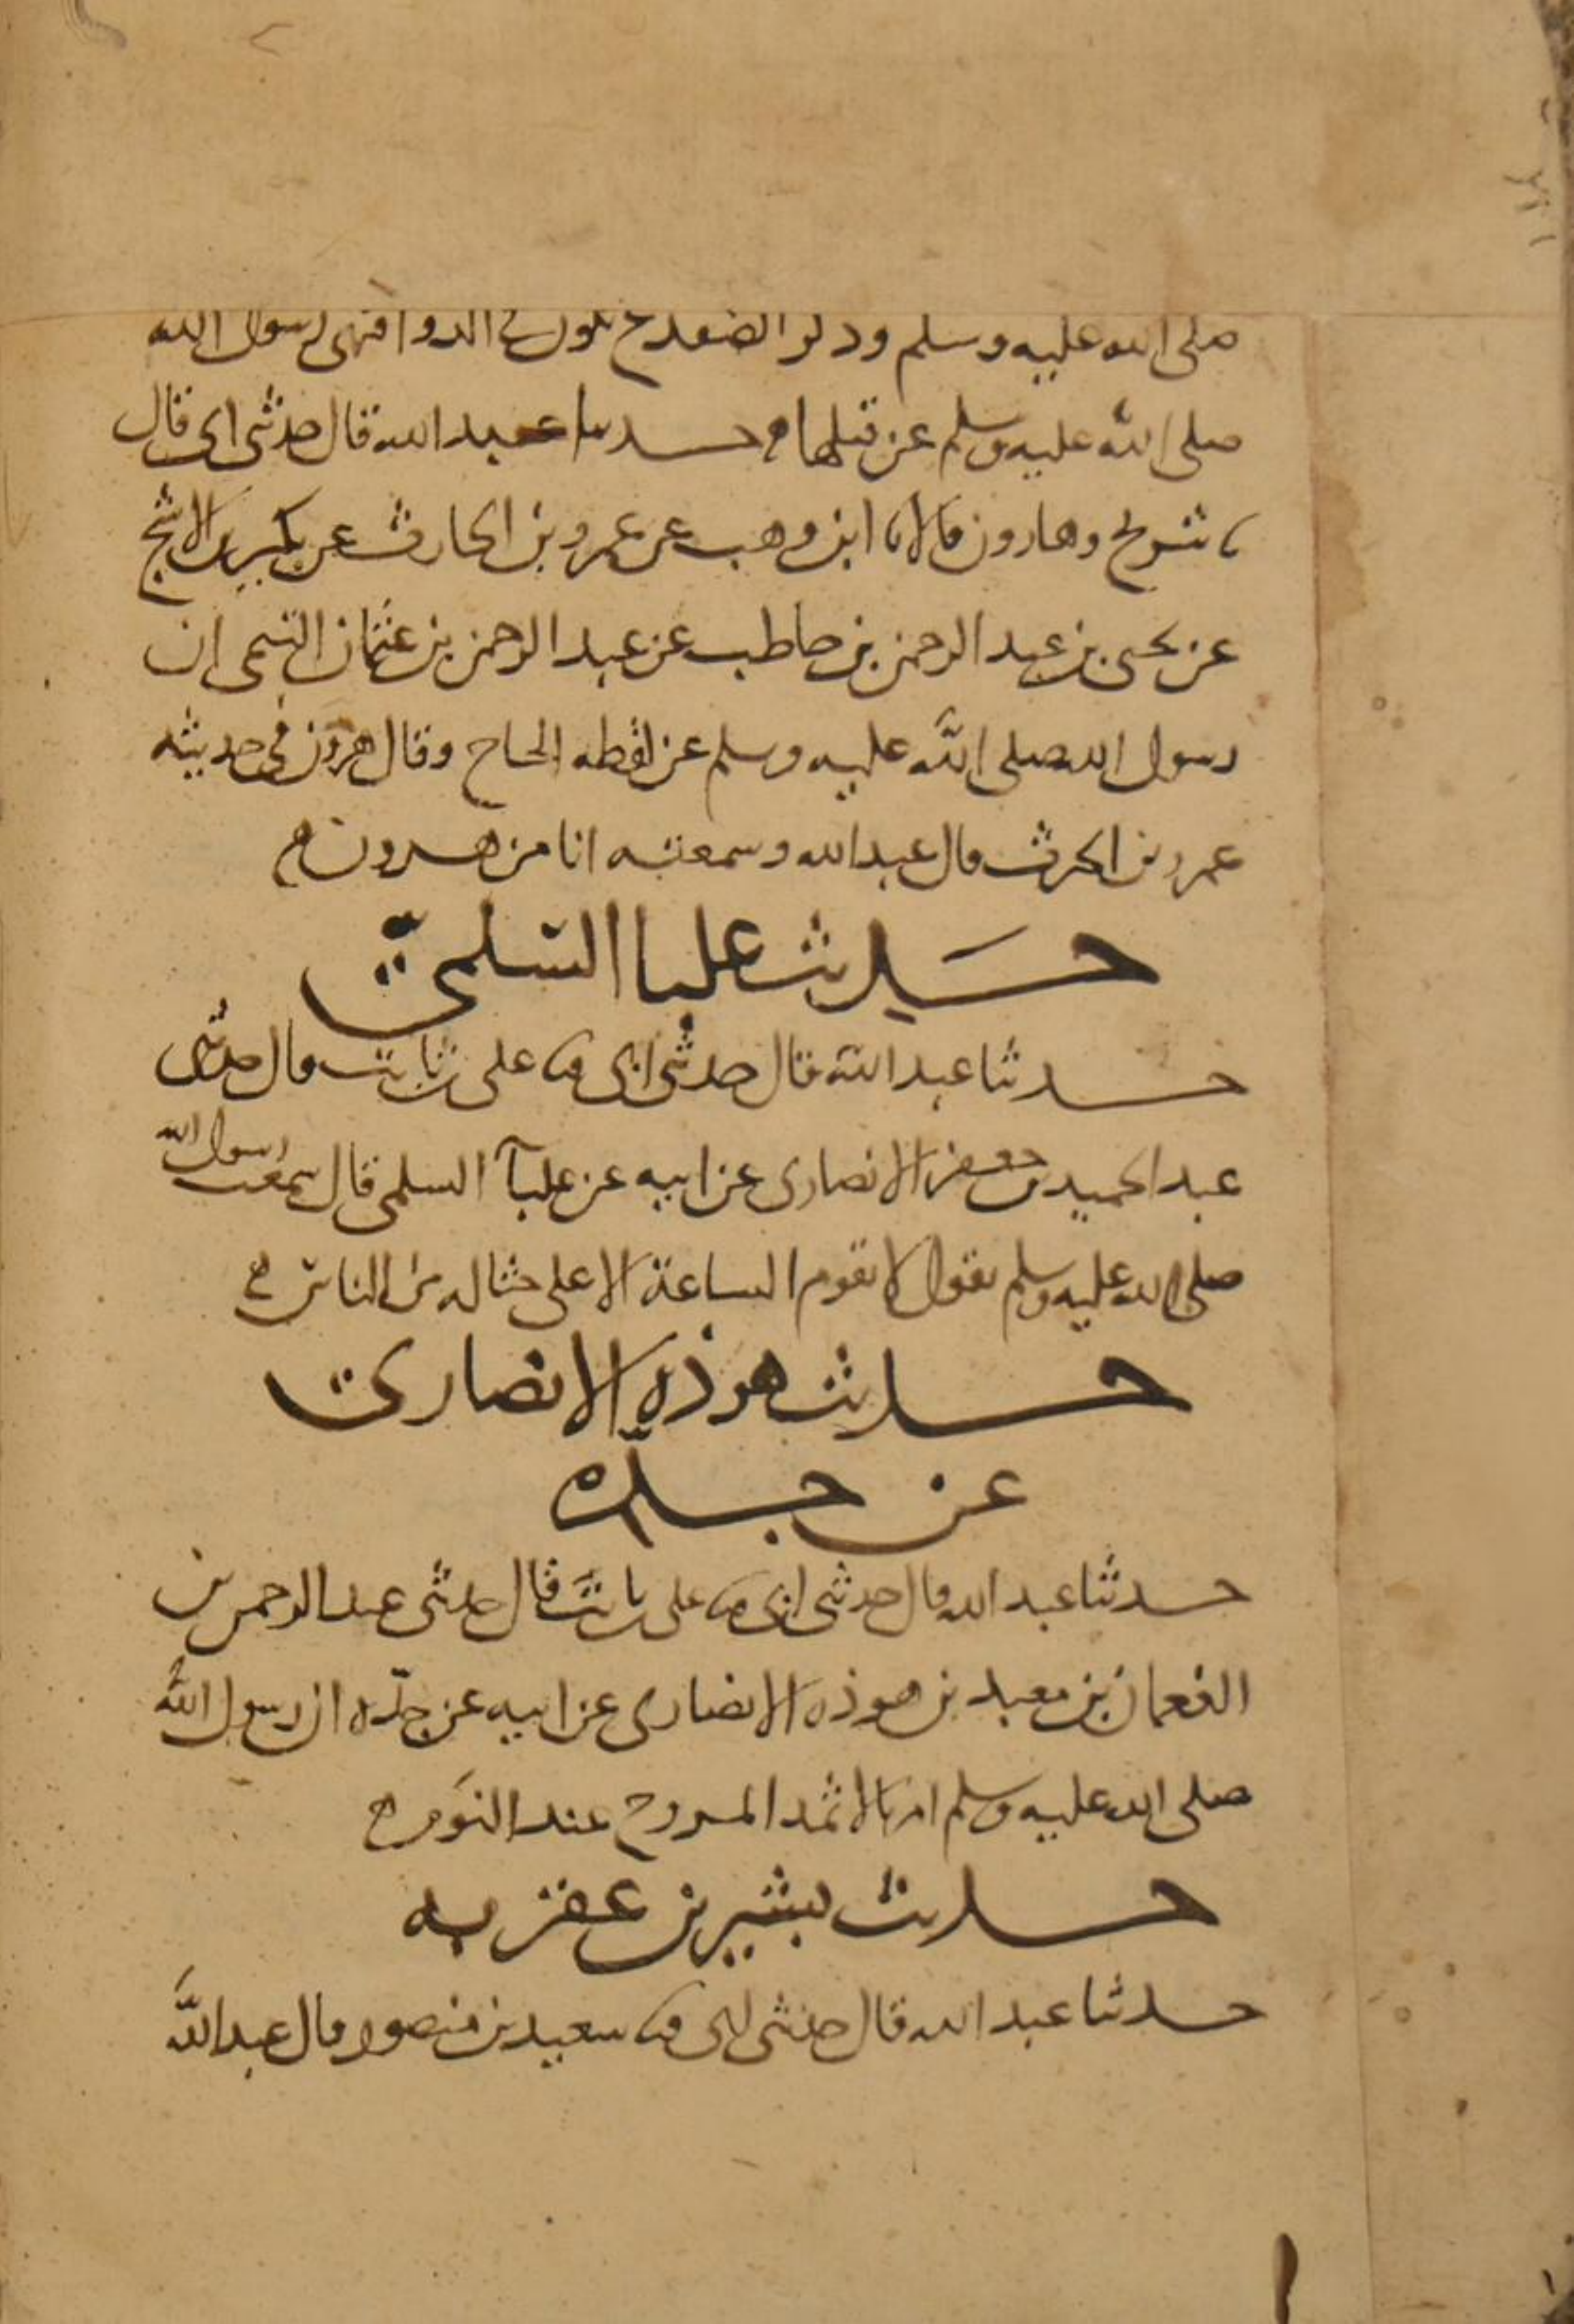 صلى الله عليه وسلم وذكر الضفدع تكون في الدواء فنهى رسول الله
صلى الله عليه وسلم عن قتلها حدثنا عبد الله قال حدثني ابي قال
ثنا سريج وهارون قالا انا ابن وهب عن عمرو بن الحارث عن بكير بن الاشج
عن يحيى بن عبد الرحمن بن حاطب عن عبد الرحمن بن عثمان التيمي ان
رسول الله صلى الله عليه وسلم عن لقطه الحاج وقال هرون في حديثه
عمرو بن الحرث قال عبد الله وسمعته انا من هرون
حديث علبا السلمي
حدثنا عبد الله قال حدثني ابي ثنا علي بن ثابت قال حدثني
عبد الحميد بن جعفر الانصاري عن ابيه عن علبآ السلمي قال سمعت رسول الله
صلى الله عليه وسلم يقول لا تقوم الساعة الا على حثاله من الناس
حديث هوذه الانصاري
عن جدّه
حدثنا عبد الله قال حدثني ابي ثنا علي بن ثابت قال حدثني عبد الرحمن بن
النعمان بن معبد بن هوذه الانصاري عن ابيه عن جدّه ان رسول الله
صلى الله عليه وسلم امر بالاثمد المروح عند النوم
حديث بشير بن عقربه
حدثنا عبد الله قال حدثني ابي ثنا سعيد بن منصور قال عبد الله